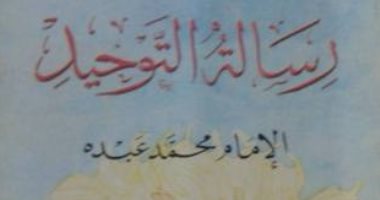 رِسَالَةُ التَّوْحِيدِ
الإمام محمد عبده